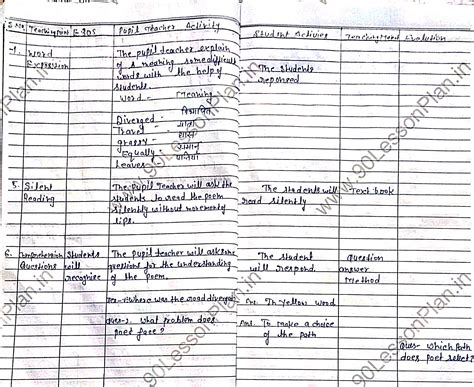 S.No. Teaching point E.BOS Pupil teacher Activity Student Activies Teaching Method Evalution
4. Word The pupil teacher explain
Expression of meaning some difficult The students
words with the help of reponsed
students.
Word - Meaning
Diverged - विभाजित
Travel -
grassy -
Equally -
Leaves - पत्तियां
5. Silent The pupil Teacher will ask the The students will Text book
Reading students to read the poem read silently
silently without movement
lips.
6. Comprehension Students The pupil teacher will ask some The student Question
Questions will questions for the understanding will respond. answer
recognize of the poem. Method
Que-1 where was the road diverged Ans. In yellow wood
Que-2. what problem does Ans. To make a choice
poet face? of the path
Que- which path
does poet select?
www.90LessonPlan.in
90LessonPlan.in